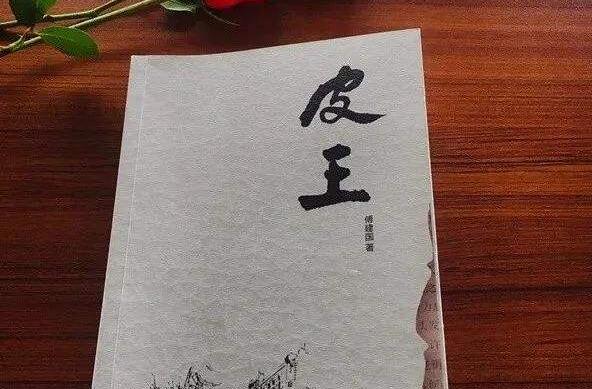 皮王
傅建国 著